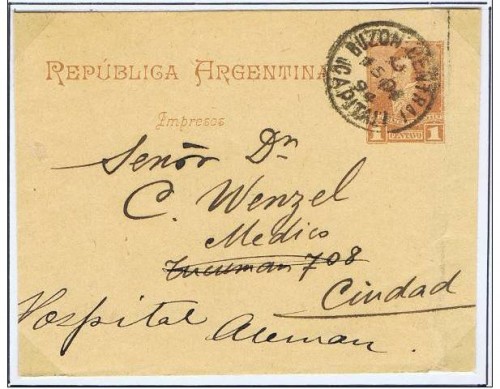 REPÚBLICA ARGENTINA
Impresos
BUZON CENTRAL
CAPITAL
1 CENTAVO 1
Señor Dn
C. Wenzel
Medico
Tucuman 708
Ciudad
Hospital Aleman.